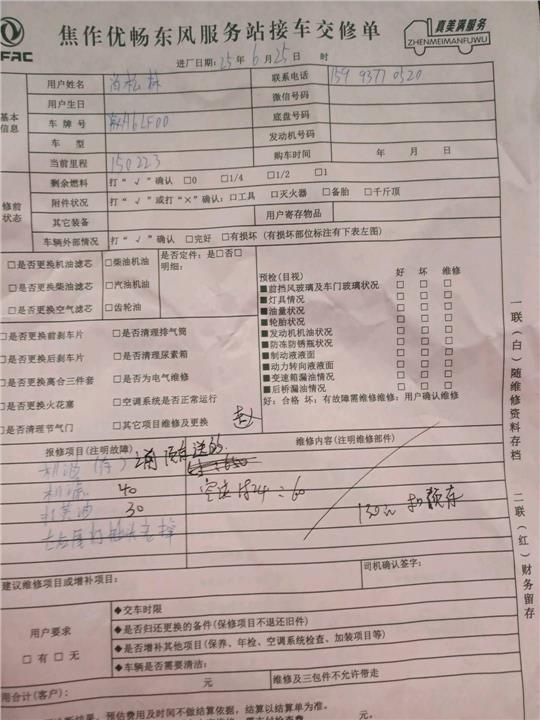 FAC
焦作优畅东风服务站接车交修单
真美满服务
ZHENMEIMANFUWU
进厂日期：25年 6月25日 时
基本信息
用户姓名 联系电话 159 9377 0520
用户生日 微信号码
车 牌 号 底盘号码
车 型 发动机号码
当前里程 150223 购车时间 年 月 日
修前状态
剩余燃料 打“√”确认 □0 □1/4 □1/2 □1
附件状况 打“√”或打“×”确认：□工具 □灭火器 □备胎 □千斤顶
其它装备 用户寄存物品
车辆外部情况 打“√”确认 □完好 □有损坏（有损坏部位标注有下表左图）
□是否更换机油滤芯 □柴油机油 是否定件：是□否□
明细：
□是否更换柴油滤芯 □汽油机油
□是否更换空气滤芯 □齿轮油
□是否更换前刹车片 □是否清理排气筒
□是否更换后刹车片 □是否清理尿素箱
□是否更换离合三件套 □是否为电气维修
□是否更换火花塞 □空调系统是否正常运行
□是否清理节气门 □其它项目维修及更换
预检(目视) 好 坏 维修
■前挡风玻璃及车门玻璃状况 □ □ □
■灯具情况 □ □ □
■油量状况 □ □ □
■轮胎状况 □ □ □
■发动机机油状况 □ □ □
■防冻防锈瓶状况 □ □ □
■制动液液面 □ □ □
■动力转向液液面 □ □ □
■变速箱漏油情况 □ □ □
■后桥漏油情况 □ □ □
好：合格 坏：有故障需维修维修：用户确认维修
报修项目(注明故障) 维修内容(注明维修部件)
机滤 40
30
=60
130元
建议维修项目或增补项目： 司机确认签字：
用户要求
□有 □无
◆交车时限
◆是否归还更换的备件(保修项目不退还旧件)
◆是否增补其他项目(保养、年检、空调系统检查、加装项目等)
◆车辆是否需要清洁：
用合计(客户)： 元 维修及三包件不允许带走
预估费用及时间不做结算依据，结算以结算单为准。
一联（白）随维修资料存档
二联（红）财务留存